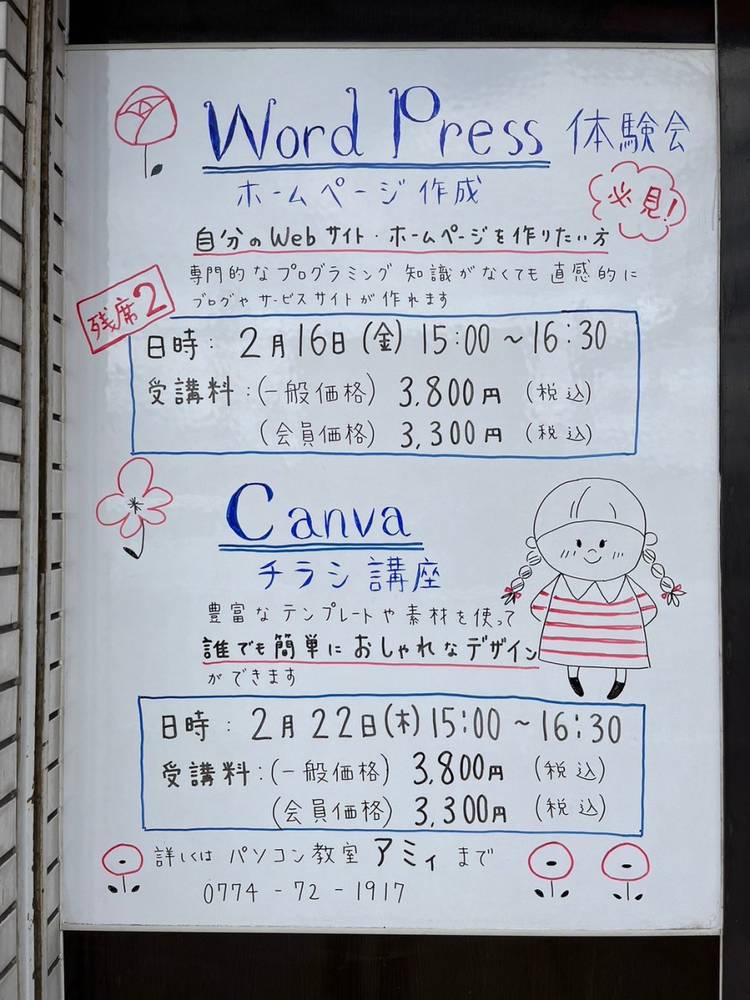 Word Press 体験会
ホームページ作成
必見!
自分のWebサイト・ホームページを作りたい方
専門的なプログラミング知識がなくても直感的に
ブログやサービスサイトが作れます
残席2
日時: 2月16日(金) 15:00〜16:30
受講料:(一般価格) 3,800円 (税込)
(会員価格) 3,300円 (税込)
Canva
チラシ講座
豊富なテンプレートや素材を使って
誰でも簡単におしゃれなデザイン
ができます
日時: 2月22日(木) 15:00〜16:30
受講料:(一般価格) 3,800円 (税込)
(会員価格) 3,300円 (税込)
詳しくは パソコン教室 アミィ まで
0774-72-1917